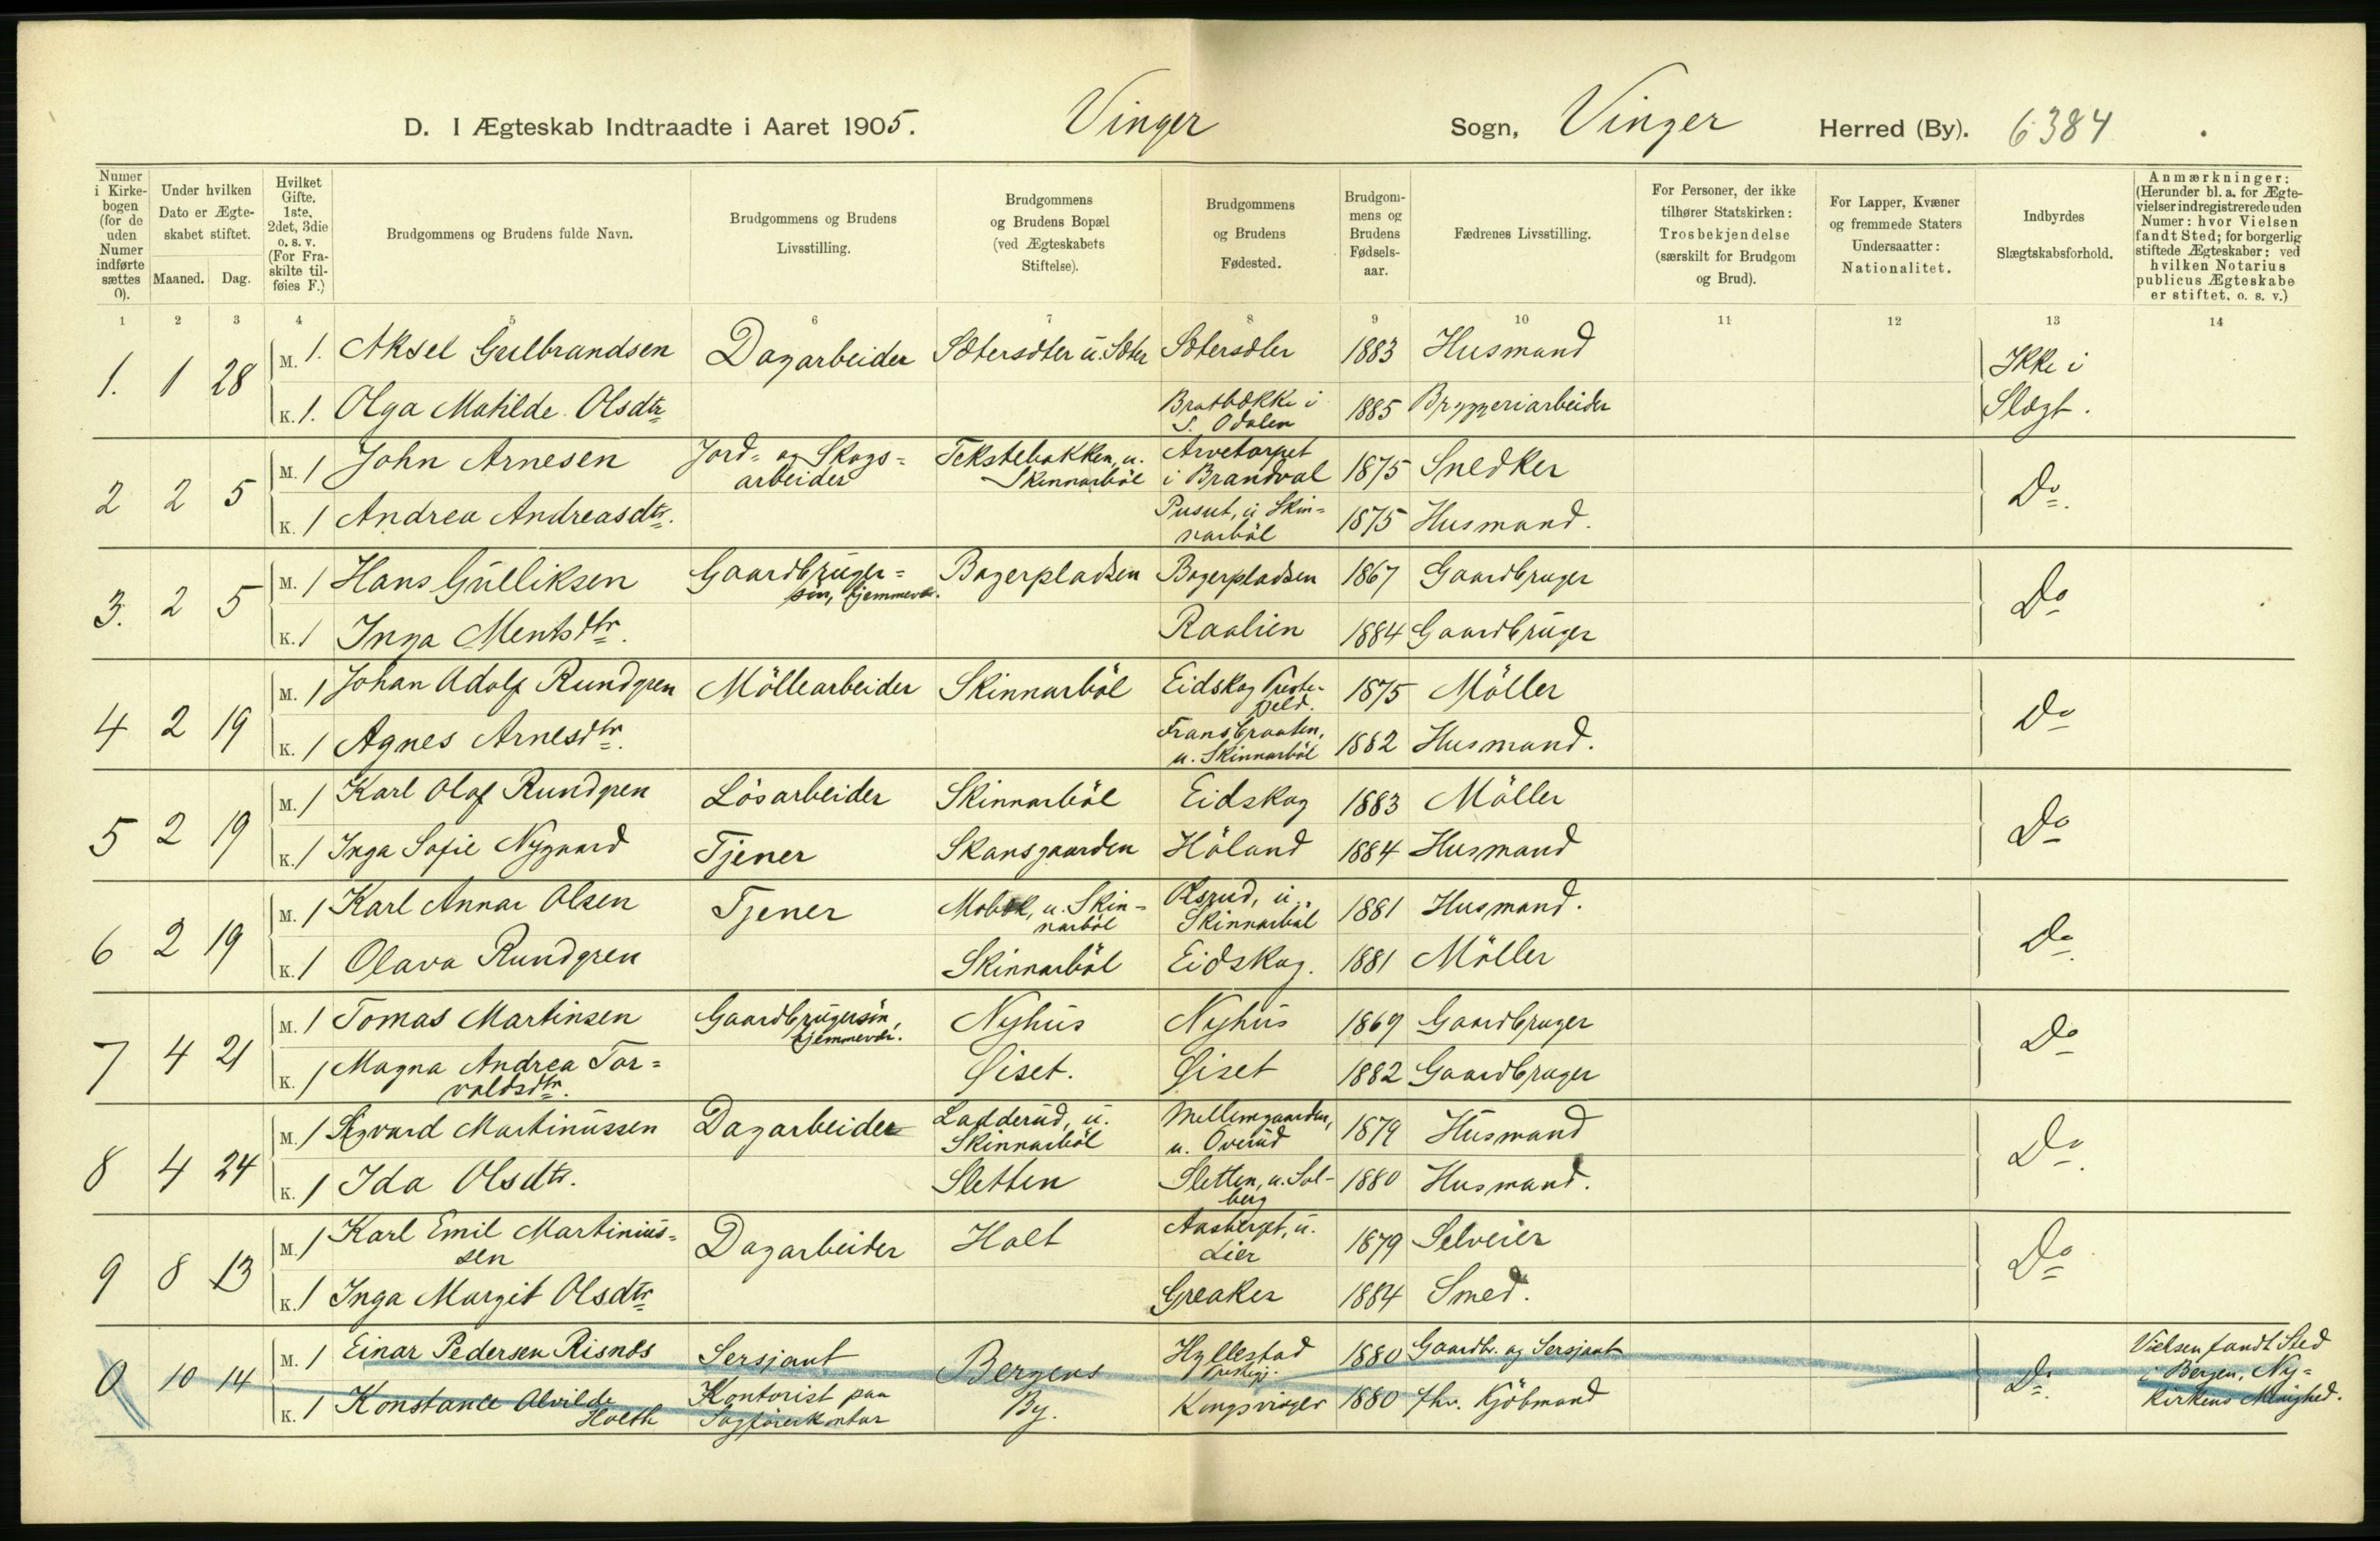 D. I Ægteskab Indtraadte i Aaret 1905. Vinger Sogn, Vinger Herred (By). 6384
Numer i Kirkebogen (for de uden Numer indførte sættes 0).
Under hvilken Dato er Ægteskabet stiftet.
Maaned. Dag.
Hvilket Gifte. 1ste, 2det, 3die o. s. v. (For Fraskilte tilføies F.)
Brudgommens og Brudens fulde Navn.
Brudgommens og Brudens Livsstilling.
Brudgommens og Brudens Bopæl (ved Ægteskabets Stiftelse).
Brudgommens og Brudens Fødested.
Brudgommens og Brudens Fødselsaar.
Fædrenes Livsstilling.
For Personer, der ikke tilhører Statskirken: Trosbekjendelse (særskilt for Brudgom og Brud).
For Lapper, Kvæner og fremmede Staters Undersaatter: Nationalitet.
Indbyrdes Slægtskabsforhold.
Anmærkninger: (Herunder bl. a. for Ægtevielser indregistrerede uden Numer: hvor Vielsen fandt Sted; for borgerlig stiftede Ægteskaber: ved hvilken Notarius publicus Ægteskabe er stiftet, o. s. v.)
1 2 3 4 5 6 7 8 9 10 11 12 13 14
1. 1 28 M. 1. Aksel Gulbrandsen Dagarbeider Sætersæter u. Sæter Sætersæter 1883 Husmand Ikke i
K. 1. Olga Matilde Olsdtr Bratbække i S. Odalen 1885 Bryggeriarbeider Slægt.
2 2 5 M. 1 John Arnesen Jord- og Skogs=arbeider Tekstebakken, u. Skinnarböl Arvetorpet i Brandval 1875 Snedker Do
K. 1 Andrea Andreasdtr. Pusut, u. Skin=narböl 1875 Husmand.
3. 2 5 M. 1 Hans Gulliksen Gaardbruger=sön, hjemmevær. Bagerpladsen Bagerpladsen 1867 Gaardbruger Do
K. 1 Inga Mentsdtr. Raalien 1884 Gaardbruger
4 2 19 M. 1 Johan Adolf Rundgren Möllearbeider Skinnarböl Eidskog Preste-gjeld. 1875 Möller Do
K. 1 Agnes Arnesdtr. Fransbraaten, u. Skinnarböl 1882 Husmand.
5 2 19 M. 1 Karl Olaf Rundgren Lösarbeider Skinnarböl Eidskog 1883 Möller Do
K. 1 Inga Sofie Nygaard Tjener Skansgaarden Höland 1884 Husmand
6 2 19 M. 1 Karl Annar Olsen Tjener Mobæk, u. Skin=narböl Olsrud, u. Skinnarböl 1881 Husmand. Do
K. 1 Olava Rundgren Skinnarböl Eidskog. 1881 Möller
7 4 21 M. 1 Tomas Martinsen Gaardbrugersön, hjemmevær. Nyhus Nyhus 1869 Gaardbruger Do
K. 1 Magna Andrea Tor=valdsdtr. Giset. Giset 1882 Gaardbruger
8 4 24 M. 1 Sigvard Martinussen Dagarbeider Ladderud, u. Skinnarböl Mellemgaarden, u. Överud 1879 Husmand Do
K. 1 Ida Olsdtr. Sletten Sletten, u. Sol-berg 1880 Husmand.
9 8 13 M. 1 Karl Emil Martinius=sen Dagarbeider Holt Aasberget, u. Lier 1879 Selveier Do
K. 1 Inga Margit Olsdtr Greaker 1884 Smed.
0 10 14 M. 1 Einar Pedersen Risnes Sersjant Bergens Hyllestad Prestegj. 1880 Gaardb. og Sersjant Do Vielsen fandt Sted i Bergen, Ny=
K. 1 Konstance Alvilde Holth Kontorist paa Sagförerkontor By. Kongsvinger 1880 fhv. Kjöbmand kirkens Menighed.